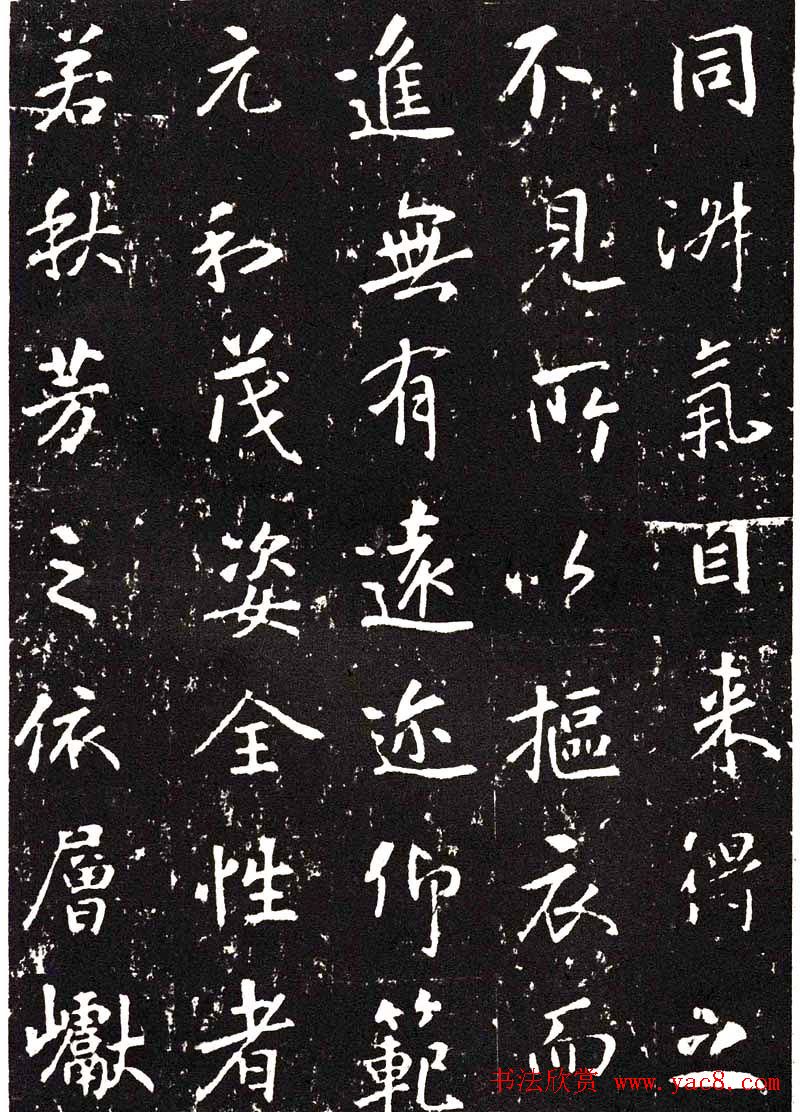 同渊氣自来得
不見所以摳衣而
進無有遠迩仰範
元和茂姿全性者
若秋芳之依層巘
书法欣赏 www.yac8.com